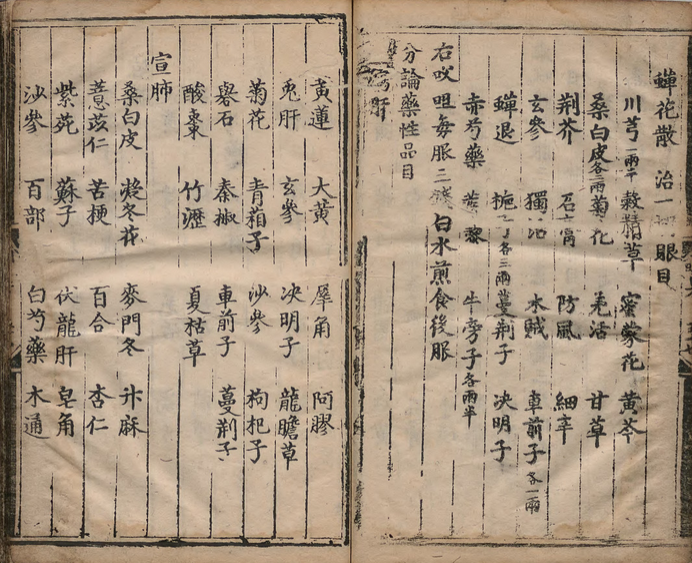 蟬花散 治一 眼目
川芎一兩半 穀精草 蜜蒙花 黄芩
桑白皮各兩 菊花 羌活 甘草
荆芥 石膏 防風 細辛
玄參 獨活 木賊 車前子各一兩
蟬退 梔子各三兩 蔓荆子 决明子
赤芍藥 蔾 牛旁子各兩半
右㕮咀每服二錢白水煎食後服
分論藥性品目
瀉肝
黄蓮 大黄 犀角 阿膠
兎肝 玄參 决明子 龍膽草
菊花 青葙子 沙參 枸杞子
礜石 秦椒 車前子 蔓荆子
酸棗 竹瀝 夏枯草
宣肺
桑白皮 欵冬花 麥門冬 升麻
薏苡仁 苦梗 百合 杏仁
紫菀 蘇子 伏龍肝 皂角
沙參 百部 白芍藥 木通